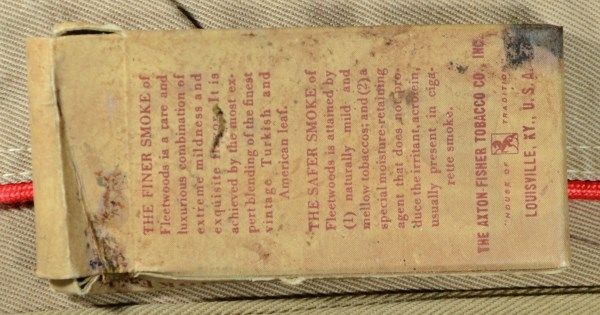 THE FINER SMOKE of
Fleetwoods is a rare and
luxurious combination of
extreme mildness and
exquisite flavor. It is
achieved by the most ex-
pert blending of the finest
vintage Turkish and
American leaf.
THE SAFER SMOKE of
Fleetwoods is attained by
(1) naturally mild and
mellow tobaccos; and (2) a
special moisture-retaining
agent that does not pro-
duce the irritant, acrolein,
usually present in ciga-
rette smoke.
THE AXTON FISHER TOBACCO CO., INC.
"HOUSE OF TRADITION"
LOUISVILLE, KY., U.S.A.